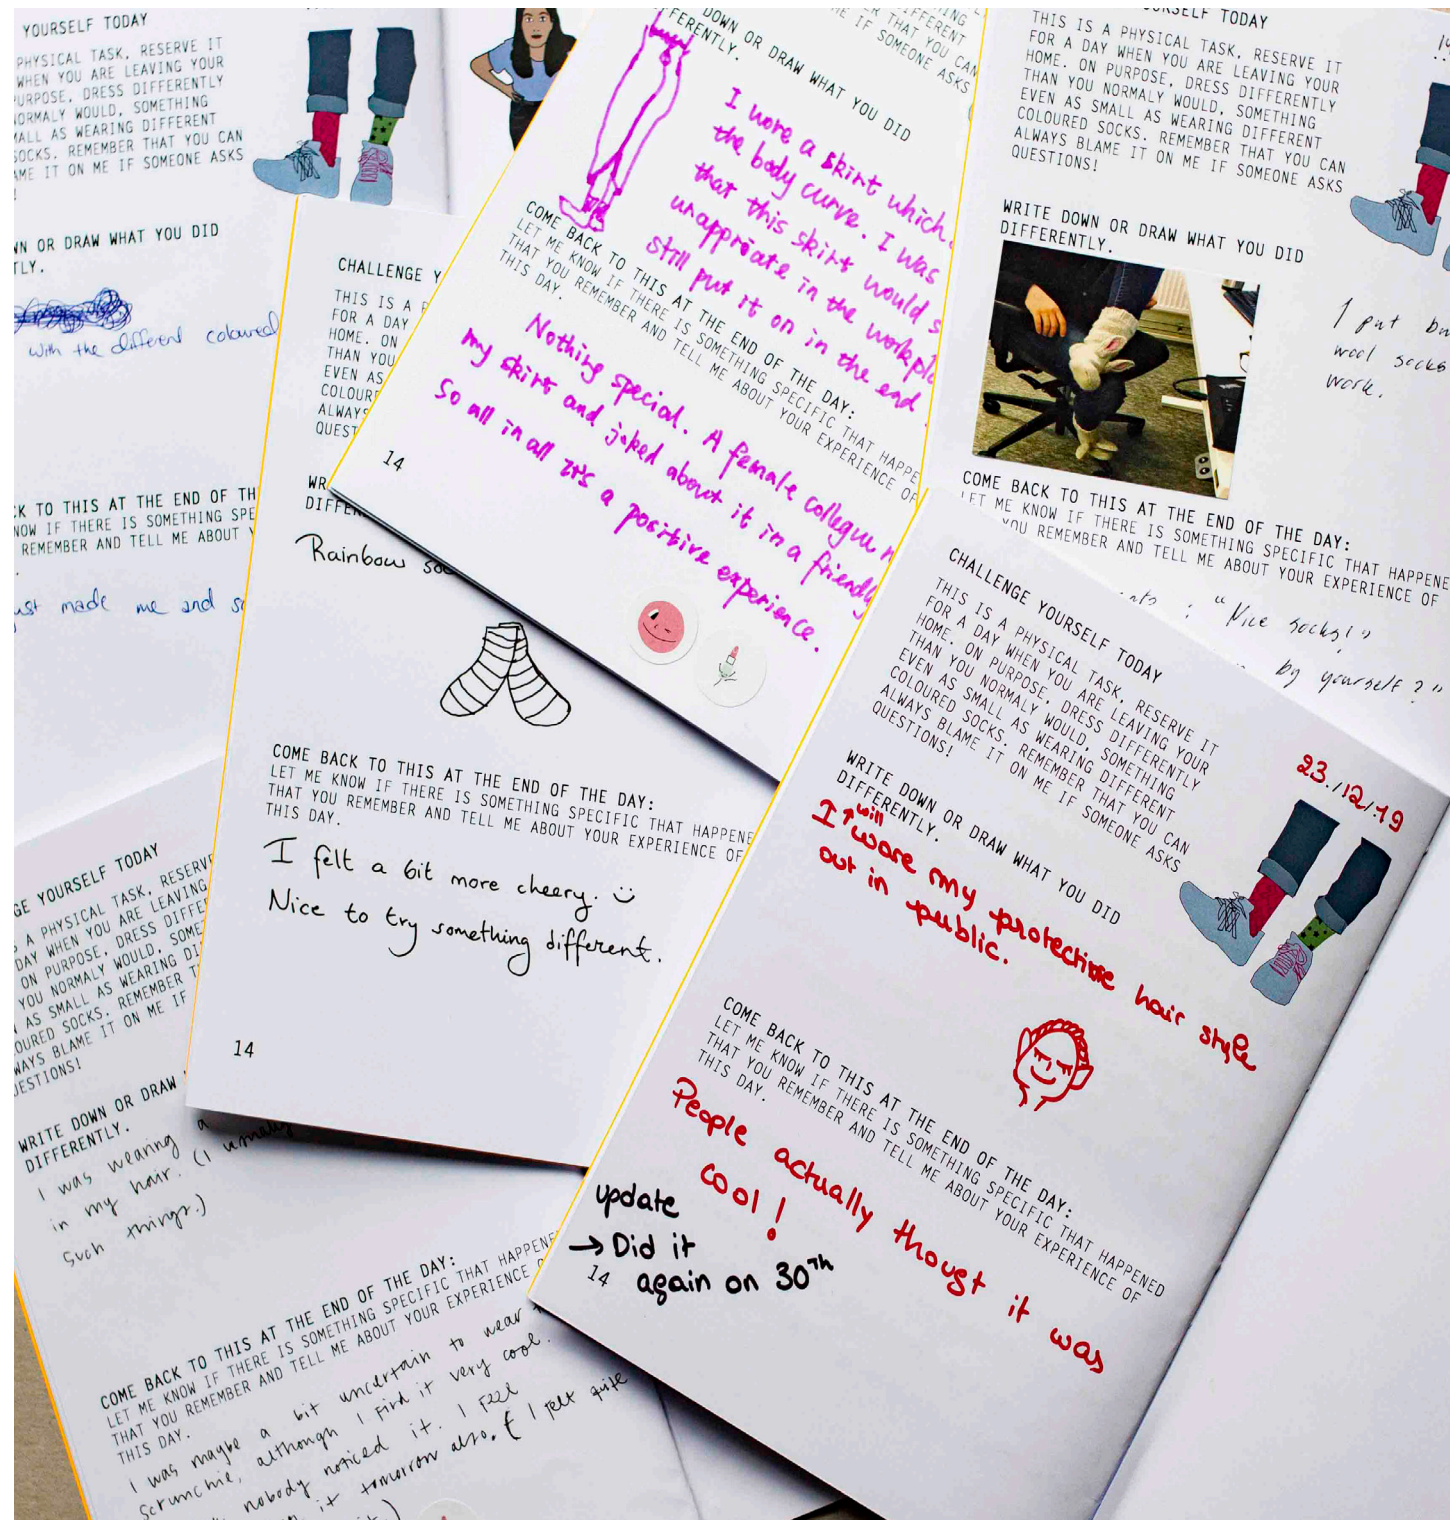 YOURSELF TODAY
PHYSICAL TASK, RESERVE IT
WHEN YOU ARE LEAVING YOUR
PURPOSE, DRESS DIFFERENTLY
NORMALY WOULD, SOMETHING
SMALL AS WEARING DIFFERENT
SOCKS. REMEMBER THAT YOU CAN
BLAME IT ON ME IF SOMEONE ASKS
!
DOWN OR DRAW WHAT YOU DID
with the different coloured
BACK TO THIS AT THE END OF TH
KNOW IF THERE IS SOMETHING SPE
REMEMBER AND TELL ME ABOUT Y
just made me and
CHALLENGE Y
THIS IS A P
FOR A DAY
HOME. ON
THAN YOU
EVEN AS
COLOURE
ALWAYS
QUEST
WR
DIFFER
Rainbow
COME BACK TO THIS AT THE END OF THE DAY:
LET ME KNOW IF THERE IS SOMETHING SPECIFIC THAT HAPPENE
THAT YOU REMEMBER AND TELL ME ABOUT YOUR EXPERIENCE OF
THIS DAY.
I felt a bit more cheery. :)
Nice to try something different.
14
DOWN OR DRAW WHAT YOU DID
FERENTLY.
THAT YOU CAN
ME IF SOMEONE ASKS
I wore a skirt which
the body curve. I was
that this skirt would s
unappropriate in the workpla
still put it on in the end
COME BACK TO THIS AT THE END OF THE DAY:
LET ME KNOW IF THERE IS SOMETHING SPECIFIC THAT HAPPE
THAT YOU REMEMBER AND TELL ME ABOUT YOUR EXPERIENCE OF
THIS DAY.
Nothing special. A female collegue
my skirt and joked about it in a friendly
So all in all it's a positive experience.
14
YOURSELF TODAY
THIS IS A PHYSICAL TASK, RESERVE IT
FOR A DAY WHEN YOU ARE LEAVING YOUR
HOME. ON PURPOSE, DRESS DIFFERENTLY
THAN YOU NORMALY WOULD, SOMETHING
EVEN AS SMALL AS WEARING DIFFERENT
COLOURED SOCKS. REMEMBER THAT YOU CAN
ALWAYS BLAME IT ON ME IF SOMEONE ASKS
QUESTIONS!
WRITE DOWN OR DRAW WHAT YOU DID
DIFFERENTLY.
I put
wool socks
work.
COME BACK TO THIS AT THE END OF THE DAY:
LET ME KNOW IF THERE IS SOMETHING SPECIFIC THAT HAPPENE
YOU REMEMBER AND TELL ME ABOUT YOUR EXPERIENCE OF
: "Nice socks!"
by yourself?"
CHALLENGE YOURSELF TODAY
THIS IS A PHYSICAL TASK, RESERVE IT
FOR A DAY WHEN YOU ARE LEAVING YOUR
HOME. ON PURPOSE, DRESS DIFFERENTLY
THAN YOU NORMALY WOULD, SOMETHING
EVEN AS SMALL AS WEARING DIFFERENT
COLOURED SOCKS. REMEMBER THAT YOU CAN
ALWAYS BLAME IT ON ME IF SOMEONE ASKS
QUESTIONS!
23./12/.19
WRITE DOWN OR DRAW WHAT YOU DID
DIFFERENTLY.
I will wore my protective hair style
out in public.
COME BACK TO THIS AT THE END OF THE DAY:
LET ME KNOW IF THERE IS SOMETHING SPECIFIC THAT HAPPENED
THAT YOU REMEMBER AND TELL ME ABOUT YOUR EXPERIENCE OF
THIS DAY.
People actually thougt it was
cool!
update
→ Did it
again on 30Th
14
GE YOURSELF TODAY
A PHYSICAL TASK, RESERVE
DAY WHEN YOU ARE LEAVING
ON PURPOSE, DRESS DIFFE
YOU NORMALY WOULD, SOME
AS SMALL AS WEARING DI
OURED SOCKS. REMEMBER T
WAYS BLAME IT ON ME IF
UESTIONS!
WRITE DOWN OR DRAW
DIFFERENTLY.
I was wearing a
in my hair. (I usually
such things.)
COME BACK TO THIS AT THE END OF THE DAY:
LET ME KNOW IF THERE IS SOMETHING SPECIFIC THAT HAPPENE
THAT YOU REMEMBER AND TELL ME ABOUT YOUR EXPERIENCE
THIS DAY.
I was maybe a bit uncertain to wear
scrunchie, although I find it very cool.
nobody noticed it. I feel
it tomorrow also. (I felt quite